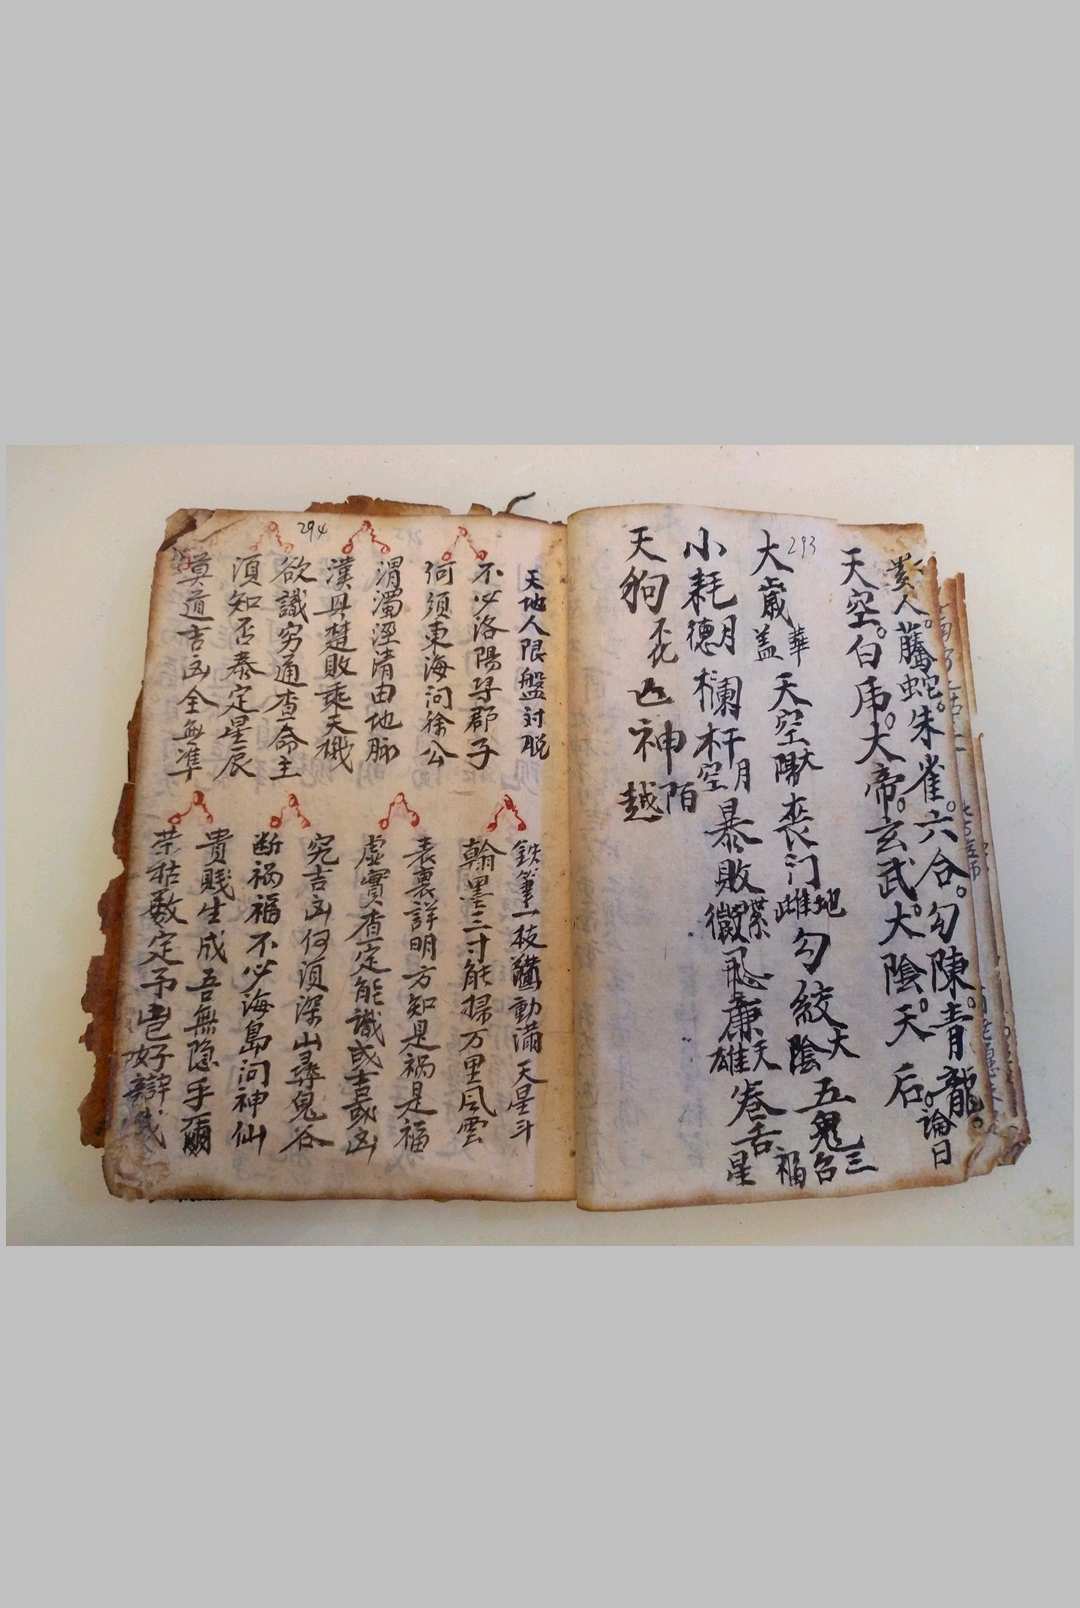 貴人。騰蛇。朱雀。六合。勾陳。青龍。
天空。白虎。大帝。玄武。大陰。天后。論曰
293
大歲華蓋天空大喪门地雌勾絞天陰五鬼三台福星
小耗月德欄杆月空暴敗飛廉天雄卷舌
天狗亡神陌越
294
天地人限盤討脱
不必洛陽尋郡子
何須東海问徐公
渭濁涇清由地脉
漢興楚敗乘天機
欲識穷通查命主
須知否泰定星辰
莫道吉凶全無準
鉄筆一枝動滿天星斗
翰墨三寸能掃万里風雲
表裏詳明方知是祸是福
虛實查定能識或吉或凶
究吉凶何須深山尋鬼谷
断祸福不必海島问神仙
貴賤生成吾無隐乎爾
荣枯数定予豈好辯哉